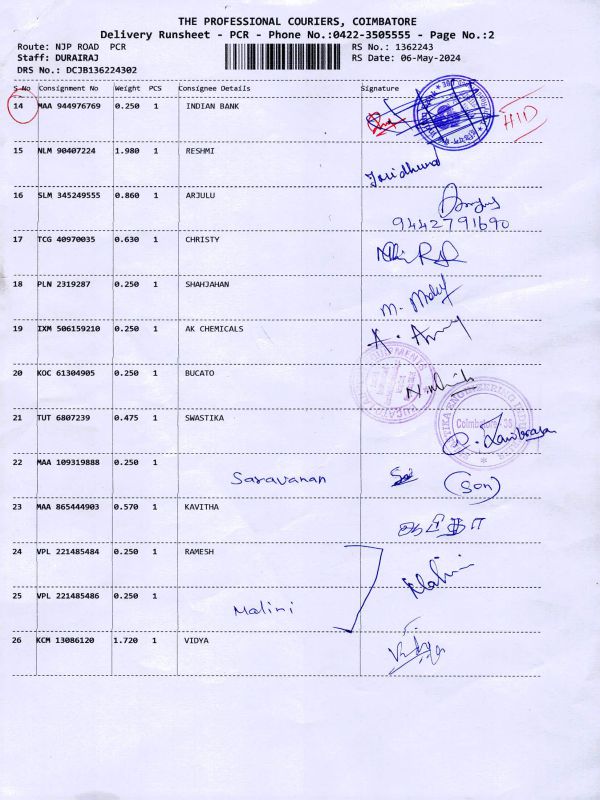 THE PROFESSIONAL COURIERS, COIMBATORE
Delivery Runsheet - PCR - Phone No.:0422-3505555 - Page No.:2
Route: NJP ROAD PCR RS No.: 1362243
Staff: DURAIRAJ RS Date: 06-May-2024
DRS No.: DCJB136224302
S No Consignment No Weight PCS Consignee Details Signature
14 MAA 944976769 0.250 1 INDIAN BANK
15 NLM 90407224 1.980 1 RESHMI
16 SLM 345249555 0.860 1 ARJULU
9442791690
17 TCG 40970035 0.630 1 CHRISTY
18 PLN 2319287 0.250 1 SHAHJAHAN
19 IXM 506159210 0.250 1 AK CHEMICALS
20 KOC 61304905 0.250 1 BUCATO
21 TUT 6807239 0.475 1 SWASTIKA
Coimbatore
22 MAA 109319888 0.250 1
Saravanan (Son)
23 MAA 865444903 0.570 1 KAVITHA
24 VPL 221485484 0.250 1 RAMESH
Malini
25 VPL 221485486 0.250 1
Malini
26 KCM 13086120 1.720 1 VIDYA
Vidya